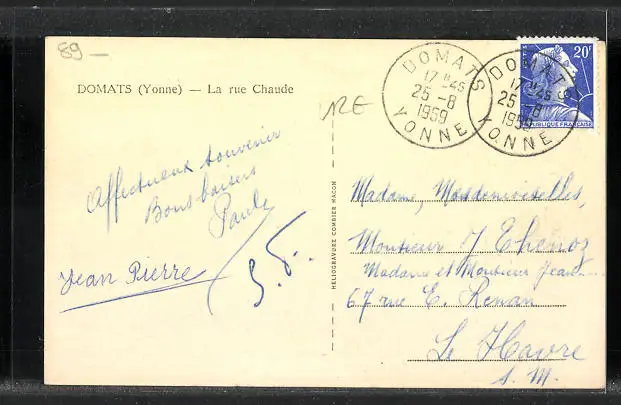 89 -
DOMATS (Yonne) — La rue Chaude
Affectueux souvenir
Bons baisers
Paule
Jean Pierre
HELIOGRAVURE COMBIER MACON
DOMATS
17 H 45
25 - 8
1959
YONNE
DOMATS
17 H 45
25 - 8
1959
YONNE
20F
RÉPUBLIQUE FRANÇAISE
Madame, Mesdemoiselles,
Monsieur J
Madame et Monsieur Jean
67 rue E. Renan
Le Havre
S. M.